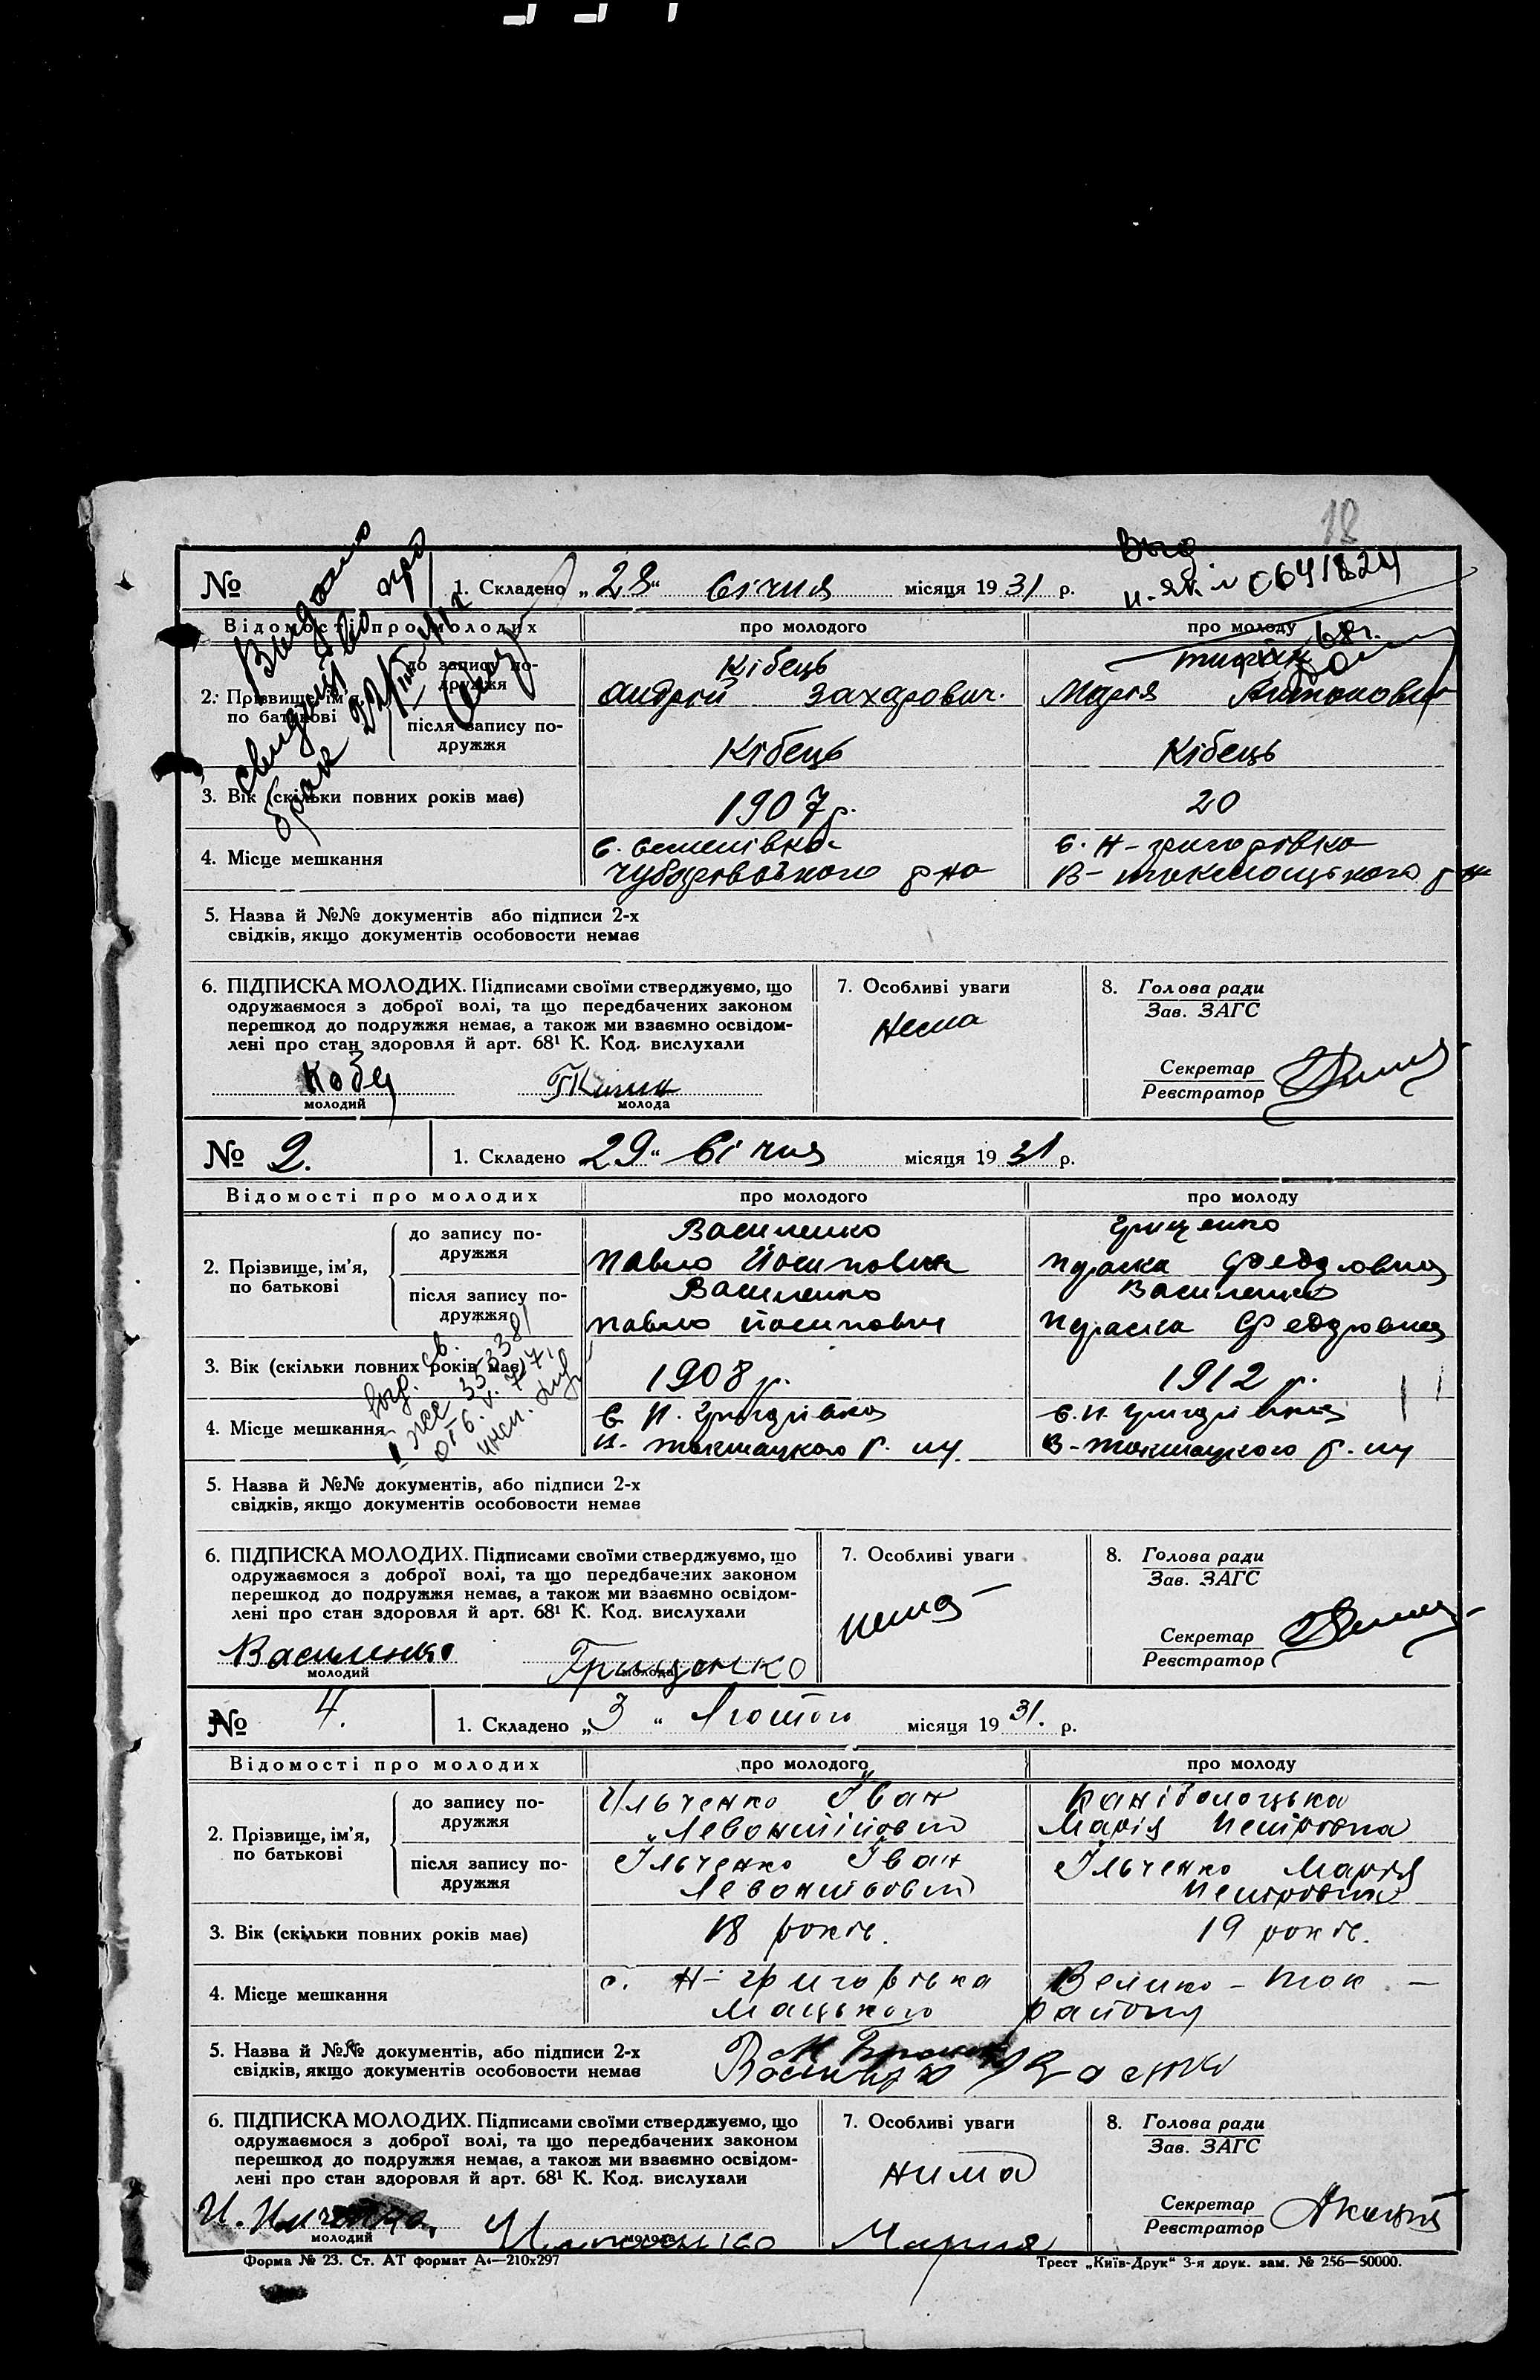 18
Выд
№ 1. Складено „28“ Січня місяця 1931 р.
и-як № 0641824
68г.
Видано
свидоцтво про
брак
Відомості про молодих про молодого про молоду
до запису по-
дружжя
Кібець
Андрій Захарович.
Марія Антоновн
2. Прізвище, ім'я,
по батькові
після запису по-
дружжя
Кібець Кібець
3. Вік (скільки повних років має) 1907 р. 20
4. Місце мешкання
с. Семенівка Чубарівського р-на
с. Н-григорівка В-токмацького р-н
5. Назва й №№ документів або підписи 2-х
свідків, якщо документів особовости немає
6. ПІДПИСКА МОЛОДИХ. Підписами своїми стверджуємо, що
одружаємося з доброї волі, та що передбачених законом
перешкод до подружжя немає, а також ми взаємно освідом-
лені про стан здоровля й арт. 68¹ К. Код. вислухали
молодий молода
7. Особливі уваги
Нема
8. Голова ради
Зав. ЗАГС
Секретар
Реєстратор
№ 2. 1. Складено 29“ Січня місяця 1931 р.
Відомості про молодих про молодого про молоду
до запису по-
дружжя
Василенко Грищенко
Павло Йосипович Параска Федоровна
2. Прізвище, ім'я,
по батькові
після запису по-
дружжя
Василенко Василенко
Павло Йосипович Параска Федоровна
3. Вік (скільки повних років має) 1908 р. 1912 р.
выд. св.
4. Місце мешкання
с. Н. Григорівка с. Н. Григорівка
В-Токмацкого р.
5. Назва й №№ документів, або підписи 2-х
свідків, якщо документів особовости немає
6. ПІДПИСКА МОЛОДИХ. Підписами своїми стверджуємо, що
одружаємося з доброї волі, та що передбачених законом
перешкод до подружжя немає, а також ми взаємно освідом-
лені про стан здоровля й арт. 68¹ К. Код. вислухали
Василенко Грищенко
молодий молода
7. Особливі уваги
нема
8. Голова ради
Зав. ЗАГС
Секретар
Реєстратор
№ 4. 1. Складено „3“ Лютого місяця 1931. р.
Відомості про молодих про молодого про молоду
до запису по-
дружжя
Ильченко Іван
Марія Петровна
2. Прізвище, ім'я,
по батькові
після запису по-
дружжя
Ільченко Іван
Ільченко Марія
Петровна
3. Вік (скільки повних років має) 18 років. 19 років.
4. Місце мешкання
с. Н-григорівка Велико-Ток-
мацького района
5. Назва й №№ документів, або підписи 2-х
свідків, якщо документів особовости немає
6. ПІДПИСКА МОЛОДИХ. Підписами своїми стверджуємо, що
одружаємося з доброї волі, та що передбачених законом
перешкод до подружжя немає, а також ми взаємно освідом-
лені про стан здоровля й арт. 68¹ К. Код. вислухали
молодий молода
Мария
7. Особливі уваги
нима
8. Голова ради
Зав. ЗАГС
Секретар
Реєстратор
Форма № 23. Ст. АТ формат А4—210х297
Трест „Київ-Друк“ 3-я друк. зам. № 256—50000.